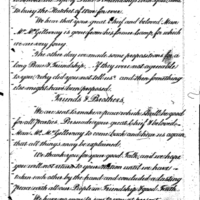 to bury the Hatchet of War for ever.
We hear that you great Chief and beloved Man
Mr. McGillivray is gone from his former Camp for which
we are very sorry.
The other day we made some propositions for a
long Peace & Friendship. If they were not agreeable
to you, why did you not tell us? and then something
else might have been proposed.
Friends & Brothers,
We are sent to make a peace which shall be good
for all parties. Persuade your great Chief & beloved
Man, Mr. McGillivray to come back and then us again
that all things may be explained.
We thank you for your good Talk, and we hope
you will not return to your nation until we have
taken each other by the hand and concluded a lasting
peace with all our People in Friendship & good Faith.